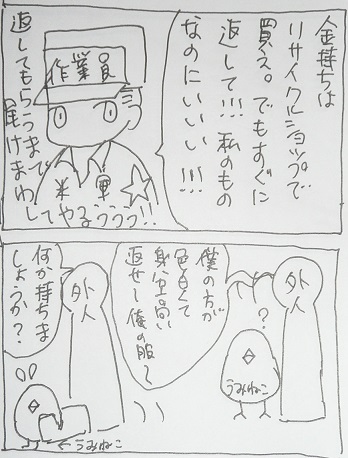 金持ちは
リサイクルショップで
買ス。でもすぐに
返して!!!私のもの
なのにいいい!!!
作業員
返してもらうまで
届けまわ
してやるううう!!
米 軍
外人
?
うみねこ
僕の方が
色白くて
返せ〜俺の服〜
外人
何か持ちま
しょうか?
←うみねこ